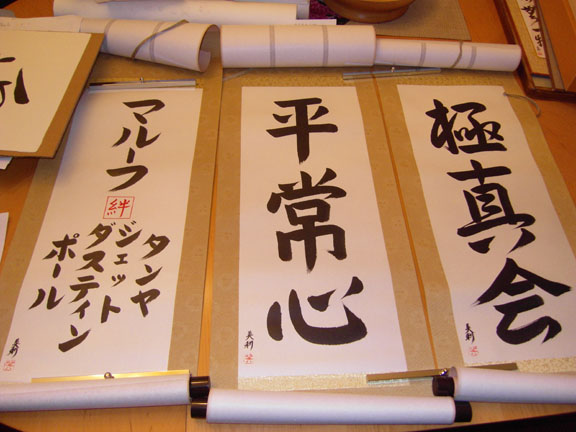 極真会
平常心
マルーフ
絆
タンヤ
ジェット
ダスティン
ポール